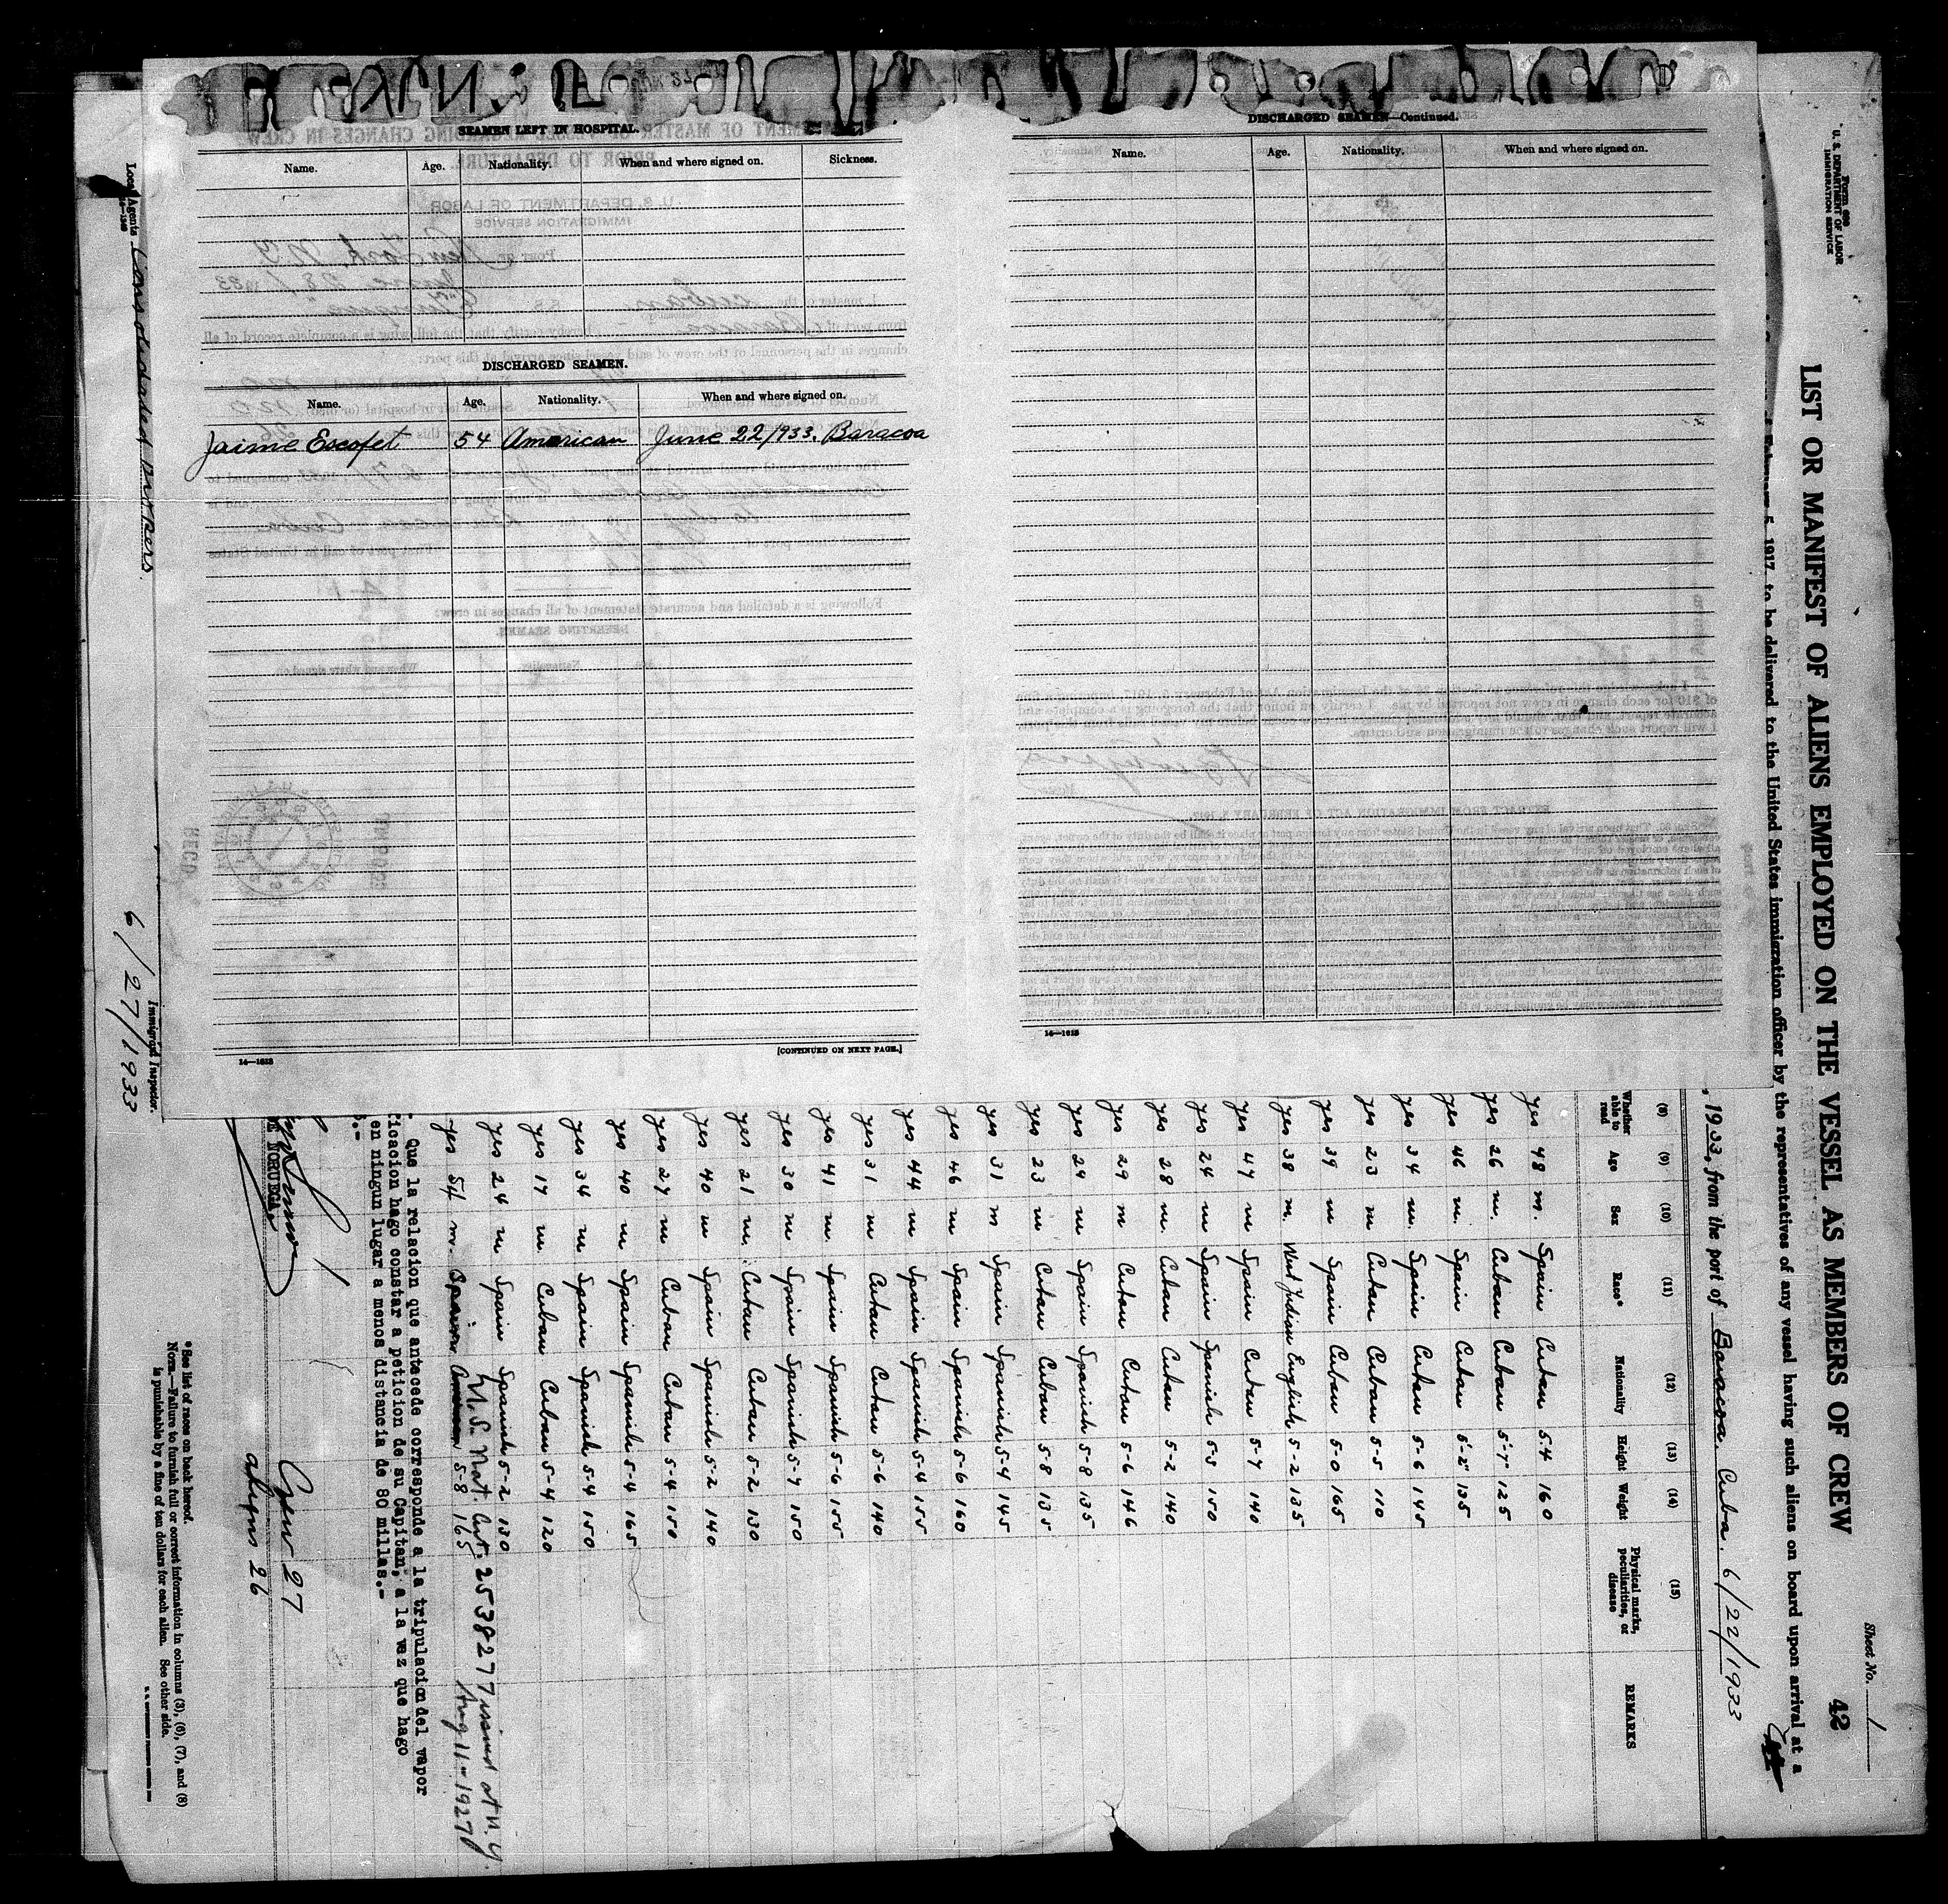 SEAMEN LEFT IN HOSPITAL.
Name. Age. Nationality. When and where signed on. Sickness.
DISCHARGED SEAMEN.
Name. Age. Nationality. When and where signed on.
Jaime Escofet 54 American June 22/933. Baracoa
14—1628
[CONTINUED ON NEXT PAGE.]
DISCHARGED SEAMEN—Continued.
Name. Age. Nationality. When and where signed on.
14—1628
Form 689
U. S. DEPARTMENT OF LABOR
IMMIGRATION SERVICE
Sheet No. 1
42
LIST OR MANIFEST OF ALIENS EMPLOYED ON THE VESSEL AS MEMBERS OF CREW
February 5, 1917, to be delivered to the United States immigration officer by the representatives of any vessel having such aliens on board upon arrival at a
, 1933, from the port of Baracoa. Cuba. 6/22/1933
(8) (9) (10) (11) (12) (13) (14) (15)
Whether able to read Age Sex Race* Nationality Height Weight Physical marks, peculiarities, or disease REMARKS
yes 48 m. Spain Cuban 5-4 160
yes 26 m. Cuban Cuban 5-7 125
yes 46 m. Spain Cuban 5-2 135
yes 34 m. Spain Cuban 5-6 145
yes 23 m Cuban Cuban 5-5 110
yes 39 m Spain Cuban 5-0 165
yes 38 m. West Indian English 5-2 135
yes 47 m Spain Cuban 5-7 140
yes 24 m Spain Spanish 5-5 150
yes 28 m. Cuban Cuban 5-2 140
yes 29 m Cuban Cuban 5-6 146
yes 29 m Spain Spanish 5-8 135
yes 23 m Cuban Cuban 5-8 135
yes 31 m Spain Spanish 5-4 145
yes 46 m Spain Spanish 5-6 160
yes 44 m Spain Spanish 5-4 155
yes 31 m Cuban Cuban 5-6 140
yes 41 m. Spain Spanish 5-6 155
yes 30 m Spain Spanish 5-7 150
yes 21 m. Cuban Cuban 5-2 130
yes 40 m Spain Spanish 5-2 140
yes 27 m Cuban Cuban 5-4 150
yes 40 m Spain Spanish 5-4 165
yes 34 m Spain Spanish 5-4 150
yes 17 m. Cuban Cuban 5-4 120
yes 24 m Spain Spanish 5-2 130
U. S. Nat. Cert. 2538277 issued at N.Y.
yes 54 m. Spain 5-8 165 Aug 11-1927
Que la relacion que antecede corresponde a la tripulacion del vapor
ficacion hago constar a peticion de su Capitan, a la vez que hago
en ningun lugar a menos distancia de 80 millas.-
NORUEGA
Crew 27
aliens 26
*See list of races on back hereof.
NOTE.—Failure to furnish full or correct information in columns (3), (6), (7), and (8)
is punishable by a fine of ten dollars for each alien. See other side.
Immigrant Inspector.
6/27/1933
Local Agents Consolidated